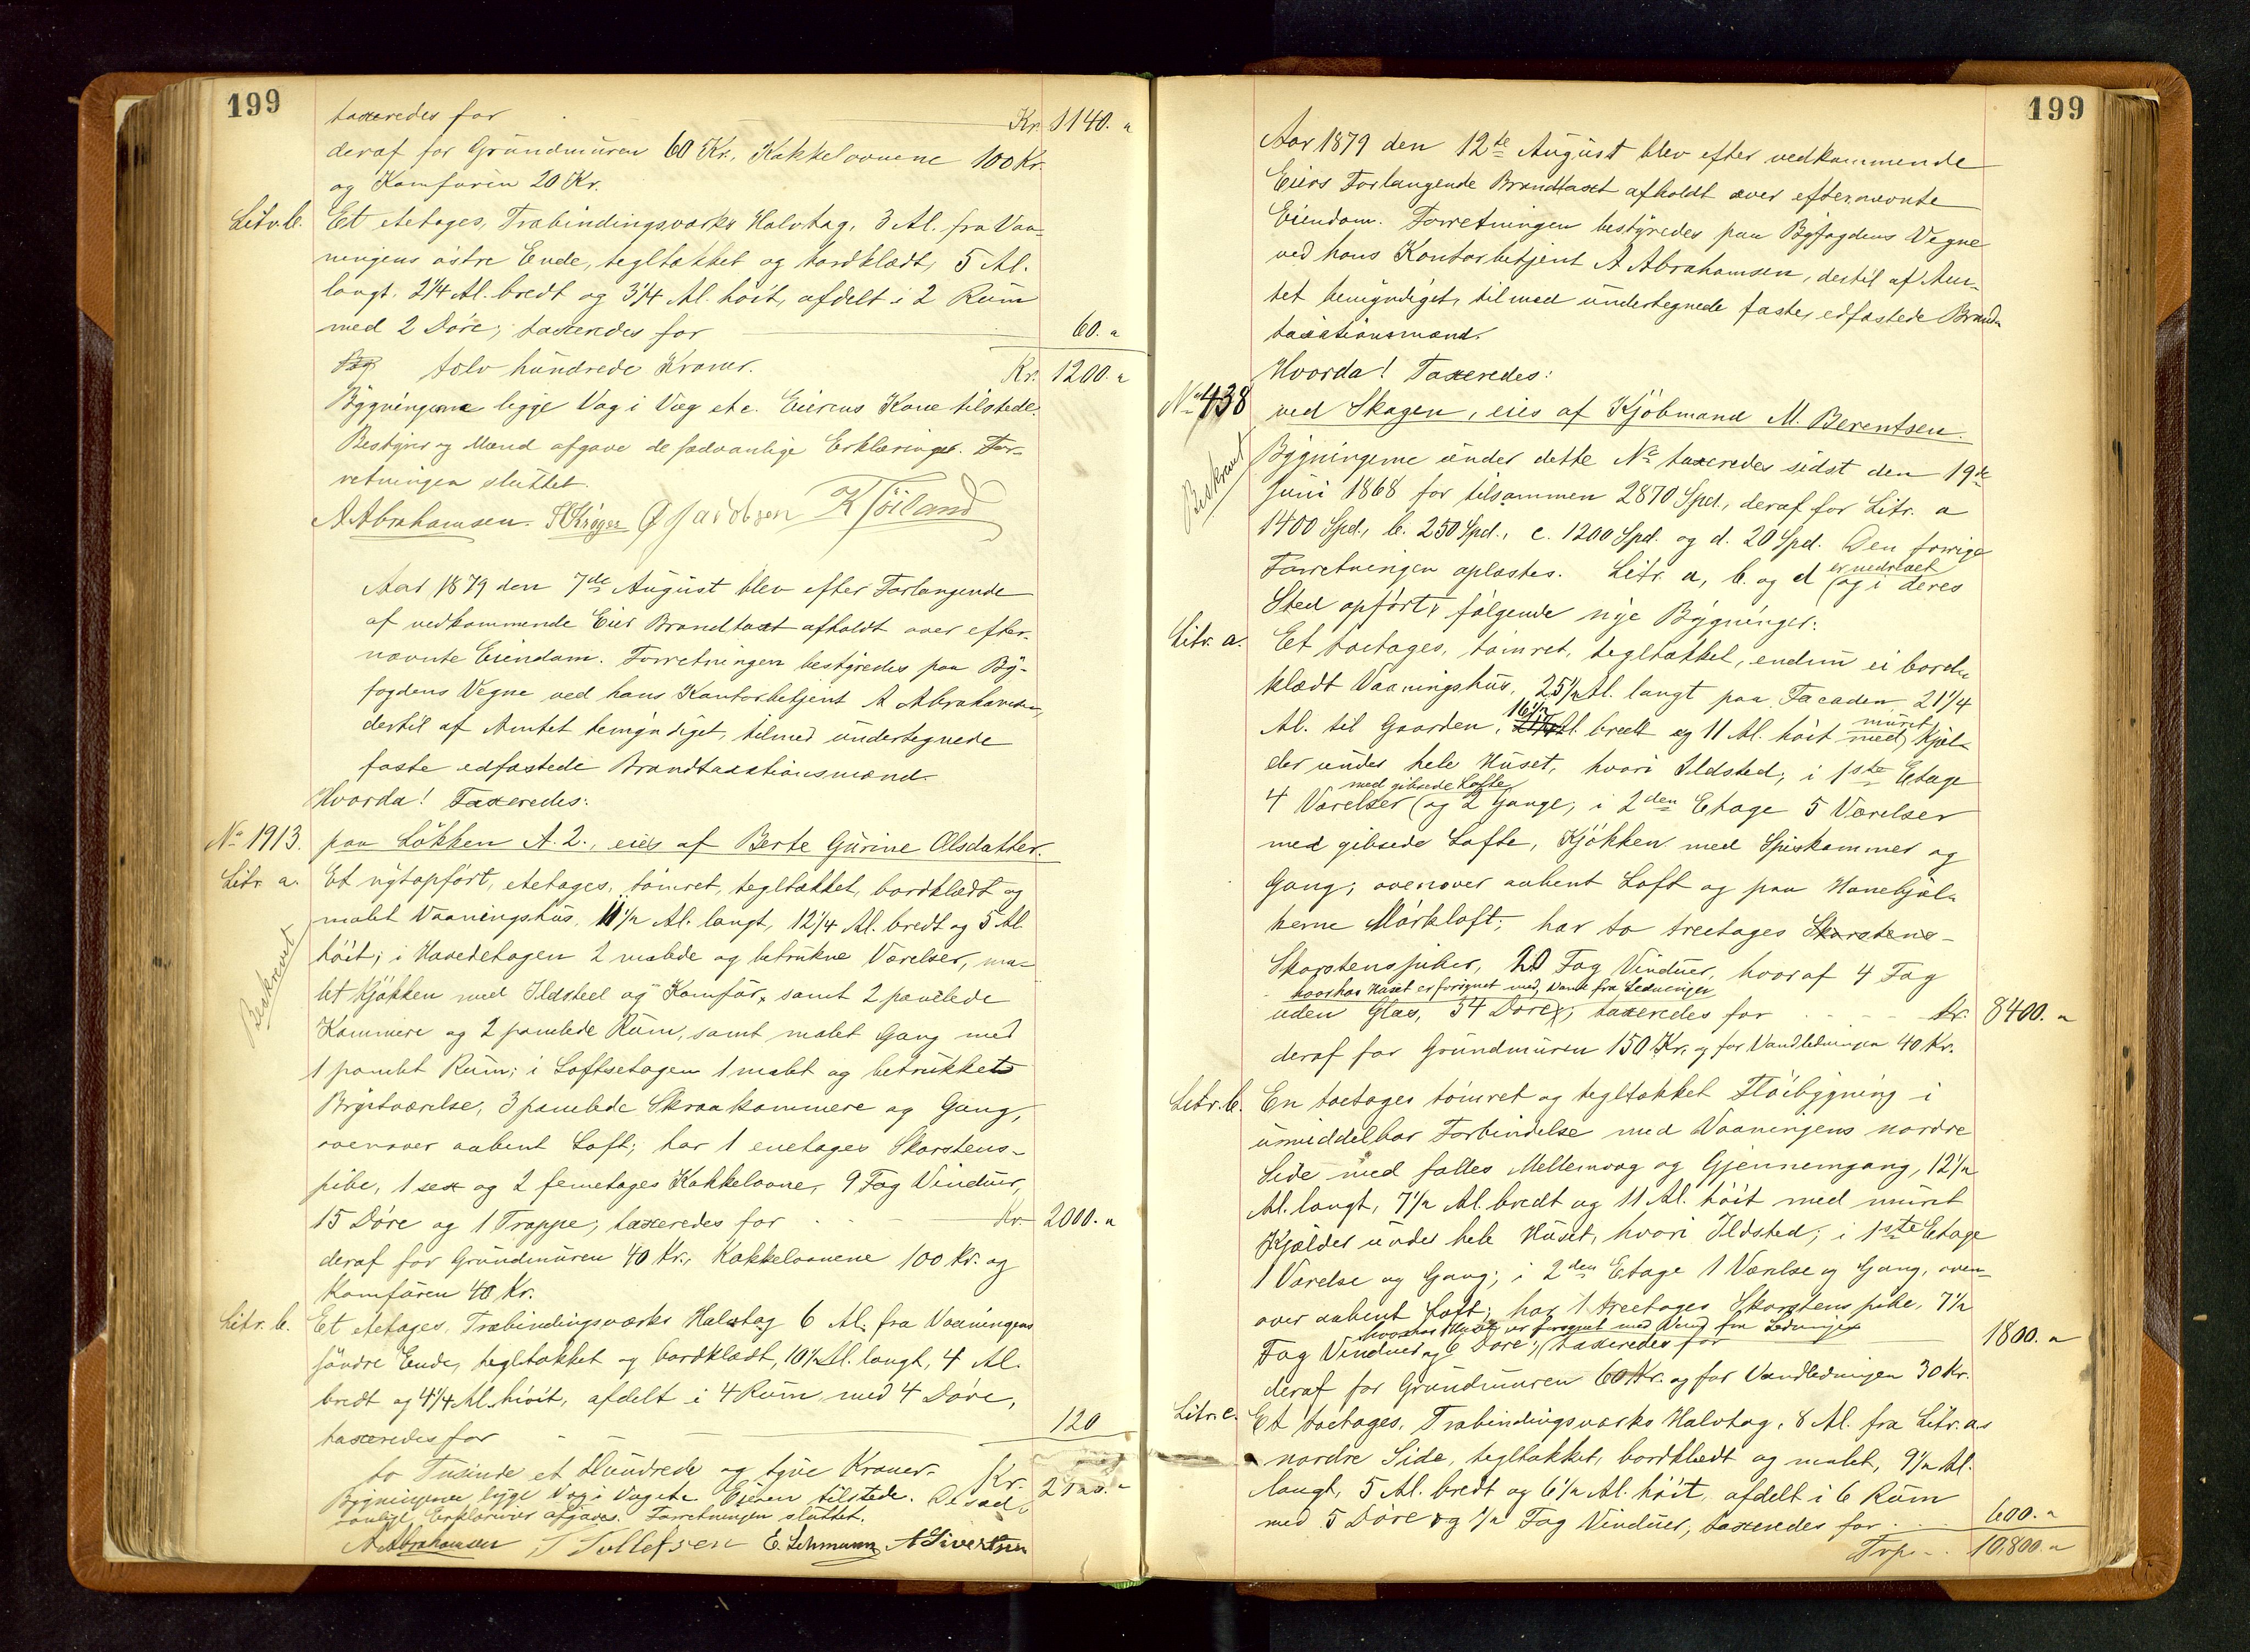 199
taxeredes for Kr. 1140. "
deraf for Grundmuren 60 Kr., Kakkelovnene 100 Kr.
og Komfuren 20 Kr.
Litr. b. Et etetages, Træbindingsværks Halvtag, 3 Al. fra Vaa-
ningens østre Ende, tegltækket og bordklædt, 5 Al.
langt, 2 1/4 Al. bredt og 3 1/4 Al. høit, afdelt i 2 Rum
med 2 Døre; taxeredes for 60. "
tolv hundrede Kroner. Kr. 1200. "
Bygningerne ligge Væg i Væg etc. Eierens Kone tilstede.
Bestyrer og Mænd afgave de sædvanlige Erklæringer. For-
retningen sluttet.
A Abrahamsen. Krøger Jacobsen K Tjoland
Aar 1879 den 7de August blev efter Forlangende
af vedkommende Eier Brandtaxt afholdt over efter-
nævnte Eiendom. Forretningen bestyredes paa By-
fogdens Vegne ved hans Kontorbetjent A Abrahamsen,
dertil af Amtet bemyndiget, tilmed undertegnede
faste edfæstede Brandtaxationsmænd.
Hvorda! Taxeredes:
No 1913. paa Løkken A. 2., eies af Berte Gurine Olsdatter.
Litr. a. Et nytopført, etetages, tømret, tegltækket, bordklædt og
malet Vaaningshus, 11 1/2 Al. langt, 12 1/4 Al. bredt og 5 Al.
Beskrevet
høit; i Hovedetagen 2 malede og betrukne Værelser, ma-
let Kjøkken med Ildsted og Komfur, samt 2 panelede
Kammere og 2 panelede Rum, samt malet Gang med
1 panelet Rum; i Loftsetagen 1 malet og betrukket
Brystværelse, 3 panelede Skraakammere og Gang,
ovenover aabent Loft; har 1 enetages Skorstens-
pibe, 1 sex og 2 femetages Kakkelovne, 9 Fag Vinduer,
15 Døre og 1 Trappe; taxeredes for Kr. 2000. "
deraf for Grundmuren 40 Kr., Kakkelovnene 100 Kr. og
Komfuren 40 Kr.
Litr. b. Et etetages, Træbindingsværks Halvtag 6 Al. fra Vaaningens
søndre Ende, tegltækket og bordklædt, 10 1/2 Al. langt, 4 Al.
bredt og 4 1/4 Al. høit, afdelt i 4 Rum med 4 Døre,
taxeredes for 120
to Tusinde et Hundrede og tyve Kroner. Kr. 2120. "
Bygningerne ligge Væg i Væg etc. Eieren tilstede. De sæd-
vanlige Erklæringer afgaves. Forretningen sluttet.
A Abrahamsen T Tollefsen E. Lehmann A Sivertsen
199
Aar 1879 den 12te August blev efter vedkommende
Eiers Forlangende Brandtaxt afholdt over efternævnte
Eiendom. Forretningen bestyredes paa Byfogdens Vegne
ved hans Kontorbetjent A Abrahamsen, dertil af Am-
tet bemyndiget, tilmed undertegnede faste, edfæstede Brand-
taxationsmænd.
Hvorda! Taxeredes:
No 438 ved Skagen, eies af Kjøbmand M. Berentsen.
Beskrevet
Bygningerne under dette No taxeredes sidst den 19de
Juni 1868 for tilsammen 2870 Spd., deraf for Litr. a
1400 Spd., b. 250 Spd., c. 1200 Spd. og d. 20 Spd. Den forrige
Forretningen oplæstes. Litr. a, b. og d er nedrevet og i deres
Sted opført, følgende nye Bygninger:
Litr. a. Et toetages, tømret, tegltækket, endnu ei bord-
klædt Vaaningshus, 25 1/2 Al. langt paa Facaden, 21 1/4
Al. til Gaarden, 16 1/2 Al. bredt og 11 Al. høit med muret Kjæl-
der under hele Huset, hvori Ildsted; i 1ste Etage
4 Værelser med gibsede Lofte og 2 Gange; i 2den Etage 5 Værelser
med gibsede Lofte, Kjøkken med Spiskammer og
Gang; ovenover aabent Loft og paa Hanebjæl-
kerne Mørkloft; har to treetages Skorstens-
Skorstenspiber, 20 Fag Vinduer, hvoraf 4 Fag
hvorhos Huset er forsynet med Vand fra Ledningen
uden Glas, 34 Døre; taxeredes for Kr. 8400. "
deraf for Grundmuren 150 Kr. og for Vandledningen 40 Kr.
Litr. b. En toetages tømret og tegltækket Fløibygning i
umiddelbar Forbindelse med Vaaningens nordre
Side med fælles Mellemvæg og Gjennemgang, 12 1/2
Al. langt, 7 1/2 Al. bredt og 11 Al. høit med muret
Kjælder under hele Huset, hvori Ildsted; i 1ste Etage
1 Værelse og Gang; i 2den Etage 1 Værelse og Gang, oven-
over aabent Loft; har 1 treetages Skorstenspibe, 7 1/2
hvorhos Huset er forsynet med Vand fra Ledningen
Fag Vinduer og 6 Døre; taxeredes for 1800. "
deraf for Grundmuren 60 Kr. og for Vandledningen 30 Kr.
Litr. c. Et toetages, Træbindingsværks Halvtag, 8 Al. fra Litr. a.s
nordre Side, tegltækket, bordklædt og malet, 9 1/2 Al.
langt, 5 Al. bredt og 6 1/2 Al. høit, afdelt i 6 Rum
med 5 Døre og 1/2 Fag Vinduer, taxeredes for 600. "
Trp. 10,800. "